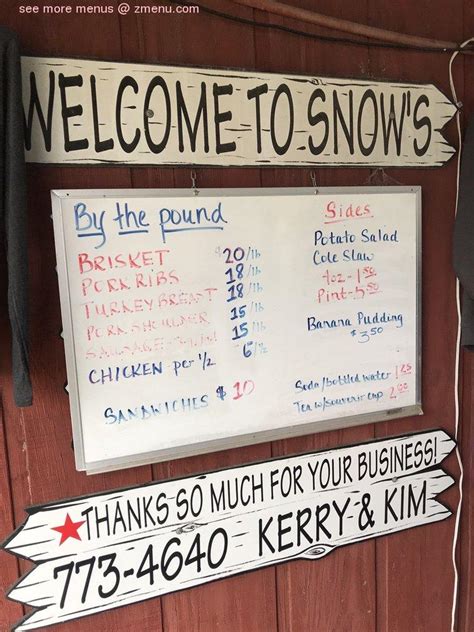 see more menus @ zmenu.com
WELCOME TO SNOW'S
By the pound
BRISKET $20/lb
PORK RIBS 18/lb
TURKEY BREAST 18/lb
PORK SHOULDER 15/lb
SAUSAGE 15/lb
CHICKEN per 1/2 6/½
SANDWICHES $10
Sides
Potato Salad
Cole Slaw
4oz - 1.50
Pint - 5.50
Banana Pudding
$3.50
Soda/bottled water
Tea w/souvenir cup
THANKS SO MUCH FOR YOUR BUSINESS!
773-4640 KERRY & KIM